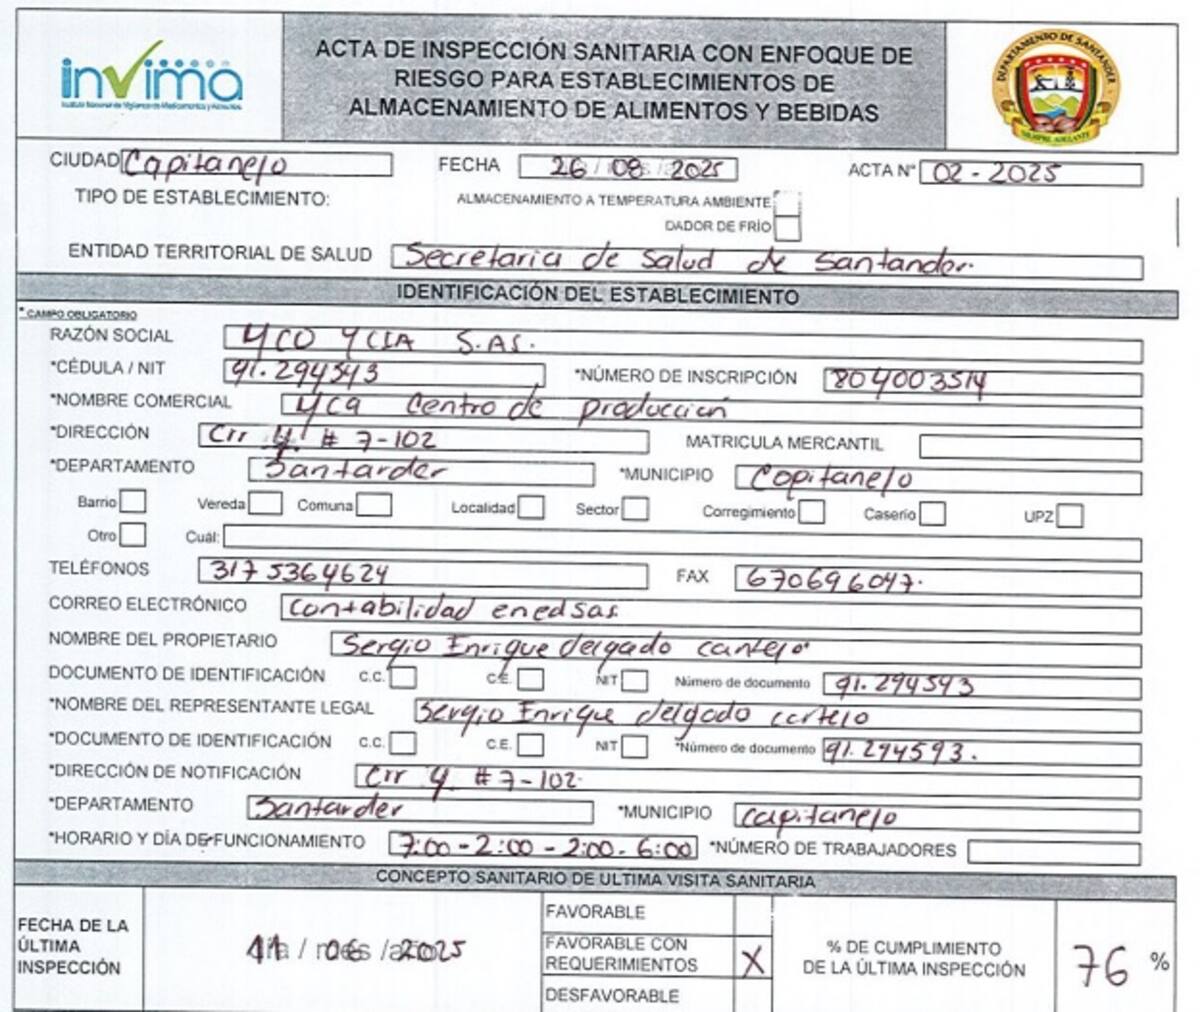 invima
Instituto Nacional de Vigilancia de Medicamentos y Alimentos
ACTA DE INSPECCIÓN SANITARIA CON ENFOQUE DE
RIESGO PARA ESTABLECIMIENTOS DE
ALMACENAMIENTO DE ALIMENTOS Y BEBIDAS
DEPARTAMENTO DE SANTANDER
SIEMPRE ADELANTE
CIUDAD Capitanejo FECHA 26 / 08 / 2025 ACTA N° 02-2025
TIPO DE ESTABLECIMIENTO: ALMACENAMIENTO A TEMPERATURA AMBIENTE
DADOR DE FRÍO
ENTIDAD TERRITORIAL DE SALUD Secretaria de Salud de Santander.
IDENTIFICACIÓN DEL ESTABLECIMIENTO
* CAMPO OBLIGATORIO
RAZÓN SOCIAL YCO YCIA S.AS.
*CÉDULA / NIT 91.294543 *NÚMERO DE INSCRIPCIÓN 804003514
*NOMBRE COMERCIAL Centro de producción
*DIRECCIÓN Crr 4. # 7-102 MATRICULA MERCANTIL
*DEPARTAMENTO Santarder *MUNICIPIO Capitanejo
Barrio Vereda Comuna Localidad Sector Corregimiento Caserío UPZ
Otro Cuál:
TELÉFONOS 3175364624 FAX 670696047.
CORREO ELECTRÓNICO Contabilidad enedsas
NOMBRE DEL PROPIETARIO Sergio Enrique delgado cantejo
DOCUMENTO DE IDENTIFICACIÓN C.C. C.E. NIT Número de documento 91.294593
*NOMBRE DEL REPRESENTANTE LEGAL Sergio Enrique delgado cortejo
*DOCUMENTO DE IDENTIFICACIÓN C.C. C.E. NIT *Número de documento 91.294593.
*DIRECCIÓN DE NOTIFICACIÓN Crr 4. # 7-102.
*DEPARTAMENTO Santarder *MUNICIPIO capitanejo
*HORARIO Y DÍA DE FUNCIONAMIENTO 7:00-2:00-2:00-6:00 *NÚMERO DE TRABAJADORES
CONCEPTO SANITARIO DE ULTIMA VISITA SANITARIA
FECHA DE LA
ÚLTIMA
INSPECCIÓN
11 / 06 / 2025
FAVORABLE
FAVORABLE CON
REQUERIMIENTOS X
DESFAVORABLE
% DE CUMPLIMIENTO
DE LA ÚLTIMA INSPECCIÓN
76 %